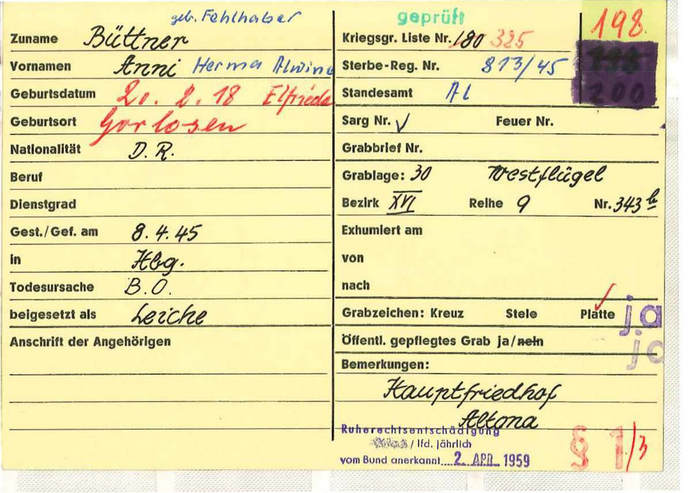 geb. Fehlhaber
Zuname Büttner
Vornamen Anni Herma Alwine
Geburtsdatum 20. 2. 18 Elfriede
Geburtsort Gorlosen
Nationalität D. R.
Beruf
Dienstgrad
Gest./Gef. am 8. 4. 45
in Hbg.
Todesursache B. O.
beigesetzt als Leiche
Anschrift der Angehörigen
geprüft
198.
Kriegsgr. Liste Nr. 180 325
Sterbe-Reg. Nr. 813/45
200
Standesamt Al
Sarg Nr. Feuer Nr.
Grabbrief Nr.
Grablage: 30 Westflügel
Bezirk XVI Reihe 9 Nr. 343 b
Exhumiert am
von
nach
Grabzeichen: Kreuz Stele Platte ja
Öffentl. gepflegtes Grab ja/nein ja
Bemerkungen:
Hauptfriedhof
Altona
Ruherechtsentschädigung
/ lfd. jährlich
vom Bund anerkannt.... 2. APR. 1959
§ 1/3